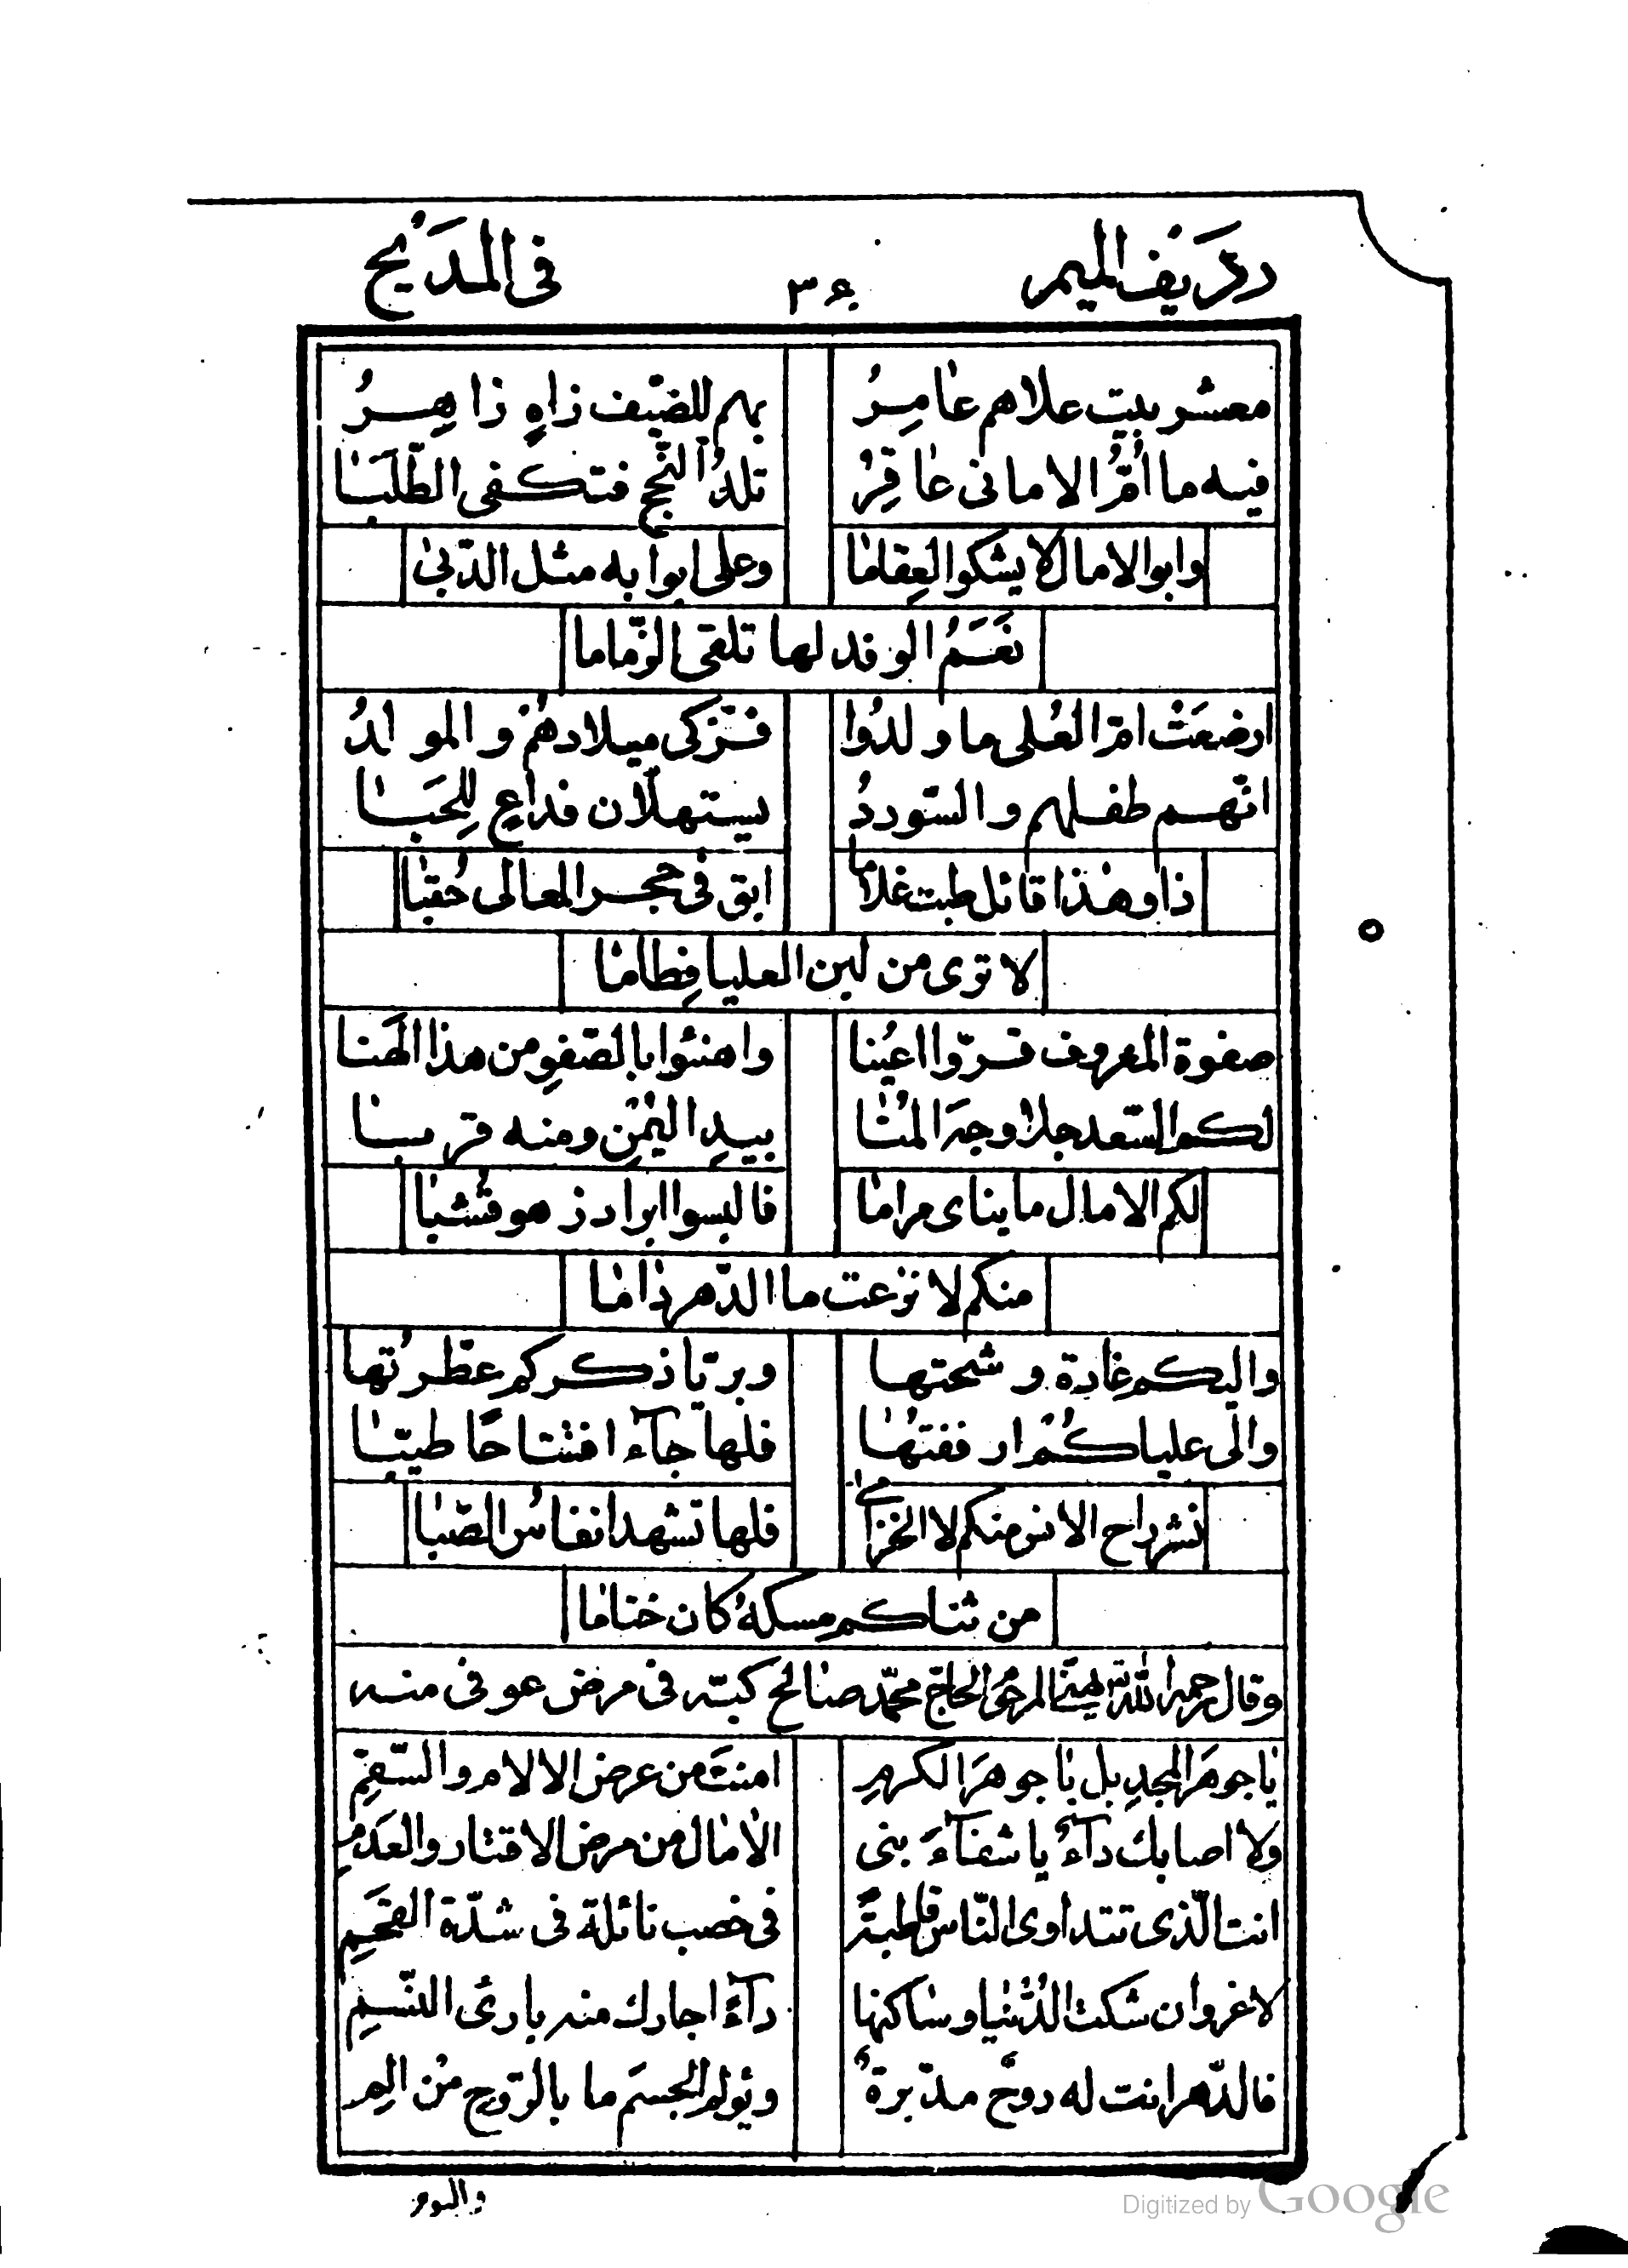 رديف الميم ٣٤ في المديح
معشر بيت علاهم عامِرُ بهم للضيف زاهٍ زاهِرُ
فيه ما اُمُّ الاماني عاقِرُ تلدُ النّجح فتكفى الطّلبَا
وابو الامال لا يشكو العِقاما وعلى ابوابه مثل الدّبىٰ
نَعَمُ الوفد لها تلقى الزّماما
ارضعَتْ امّ العُلى ما ولدُوا فتزكى ميلادهُم والمولدُ
انّهم طفلهم والسّوددُ يستهلّان فداعٍ لِلحَبَا
ذا وهٰذا قائل طبت غلاما ابق في حجر المعالى حُقبًا
لا ترى من لبن العليا فِطامًا
صفوة المعروف قرّوا اعيُنا واهنئوا بالصّفوِ من هذا الهَنا
لكم السّعد جلا وجهَ المُنا بيدِ اليُمنِ ومنه قربا
لكم الامال ما يناى مراما فالبسوا ابراد زهو قُشبًا
منكم لا نزعت ما الدّهر دٰاما
واليكم غادة وشحتها وبريّا ذكركم عطّرتُها
والى علياكُمُ ازففتُها فلها جآء افتتاحًا طيّبًا
نشر راح الانس منكم لا الخزامىٰ فلها تشهد انفاسُ الصّبا
من ثناكم مسكهُ كان ختاما
وقال رحمه الله يهنّي المرحوم الحاجّ محمّد صالح كبّه في مرض عوفى منه
يا جوهرَ المجدِ بل يا جوهرَ الكرمِ امنتَ من عرض الالام والسّقمِ
ولا اصابك دآءٌ يا شفآءَ بنى الاٰمال من مرض الاقتار والعدمِ
انت الّذى تتداوى النّاس قاطبةً في خصب نائلة في شدّة القحمِ
لا غرو ان شكت الدُّنيا وساكنها دآءً اجارك منه بارئى النّسمِ
فالدّهر انت له روحٌ مدبّرةٌ ويؤلم الجسمَ ما بالرّوح من المِ
واليوم
Digitized by Google